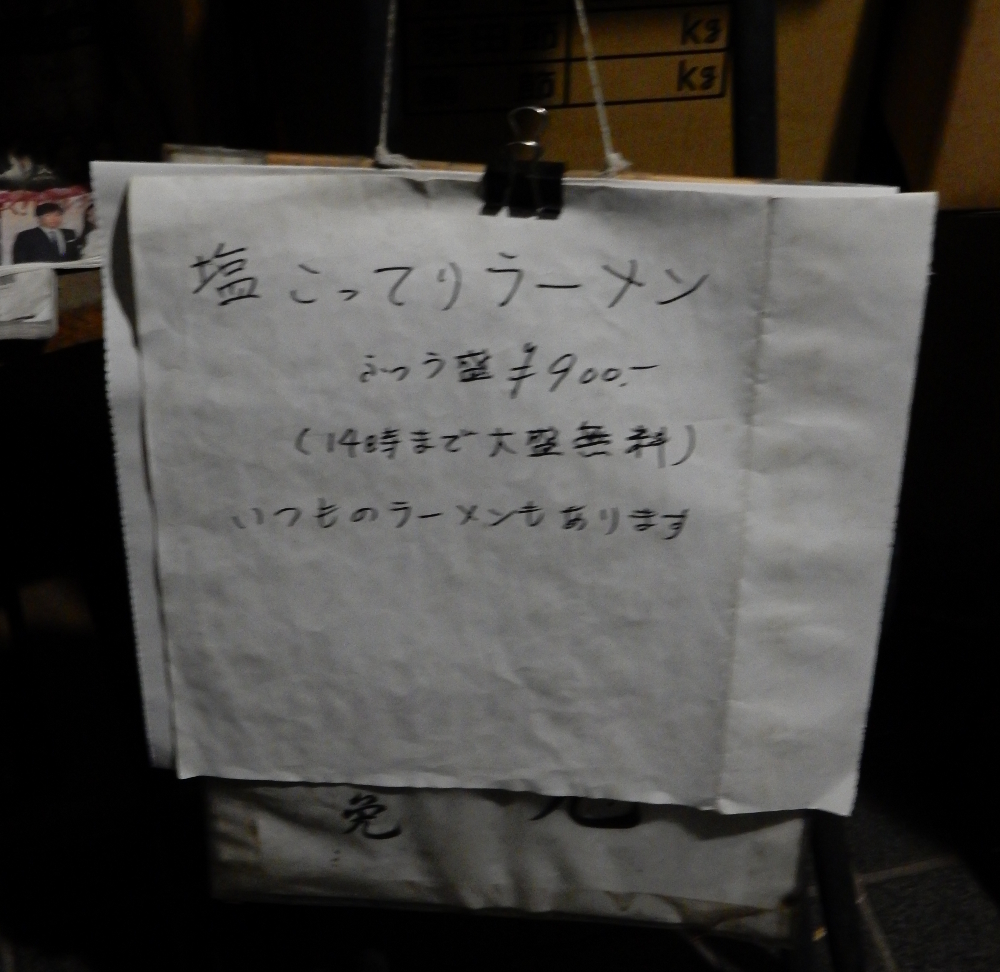 kg
節 kg
塩こってりラーメン
ふつう盛 ¥900.-
(14時まで大盛無料)
いつものラーメンもあります
免